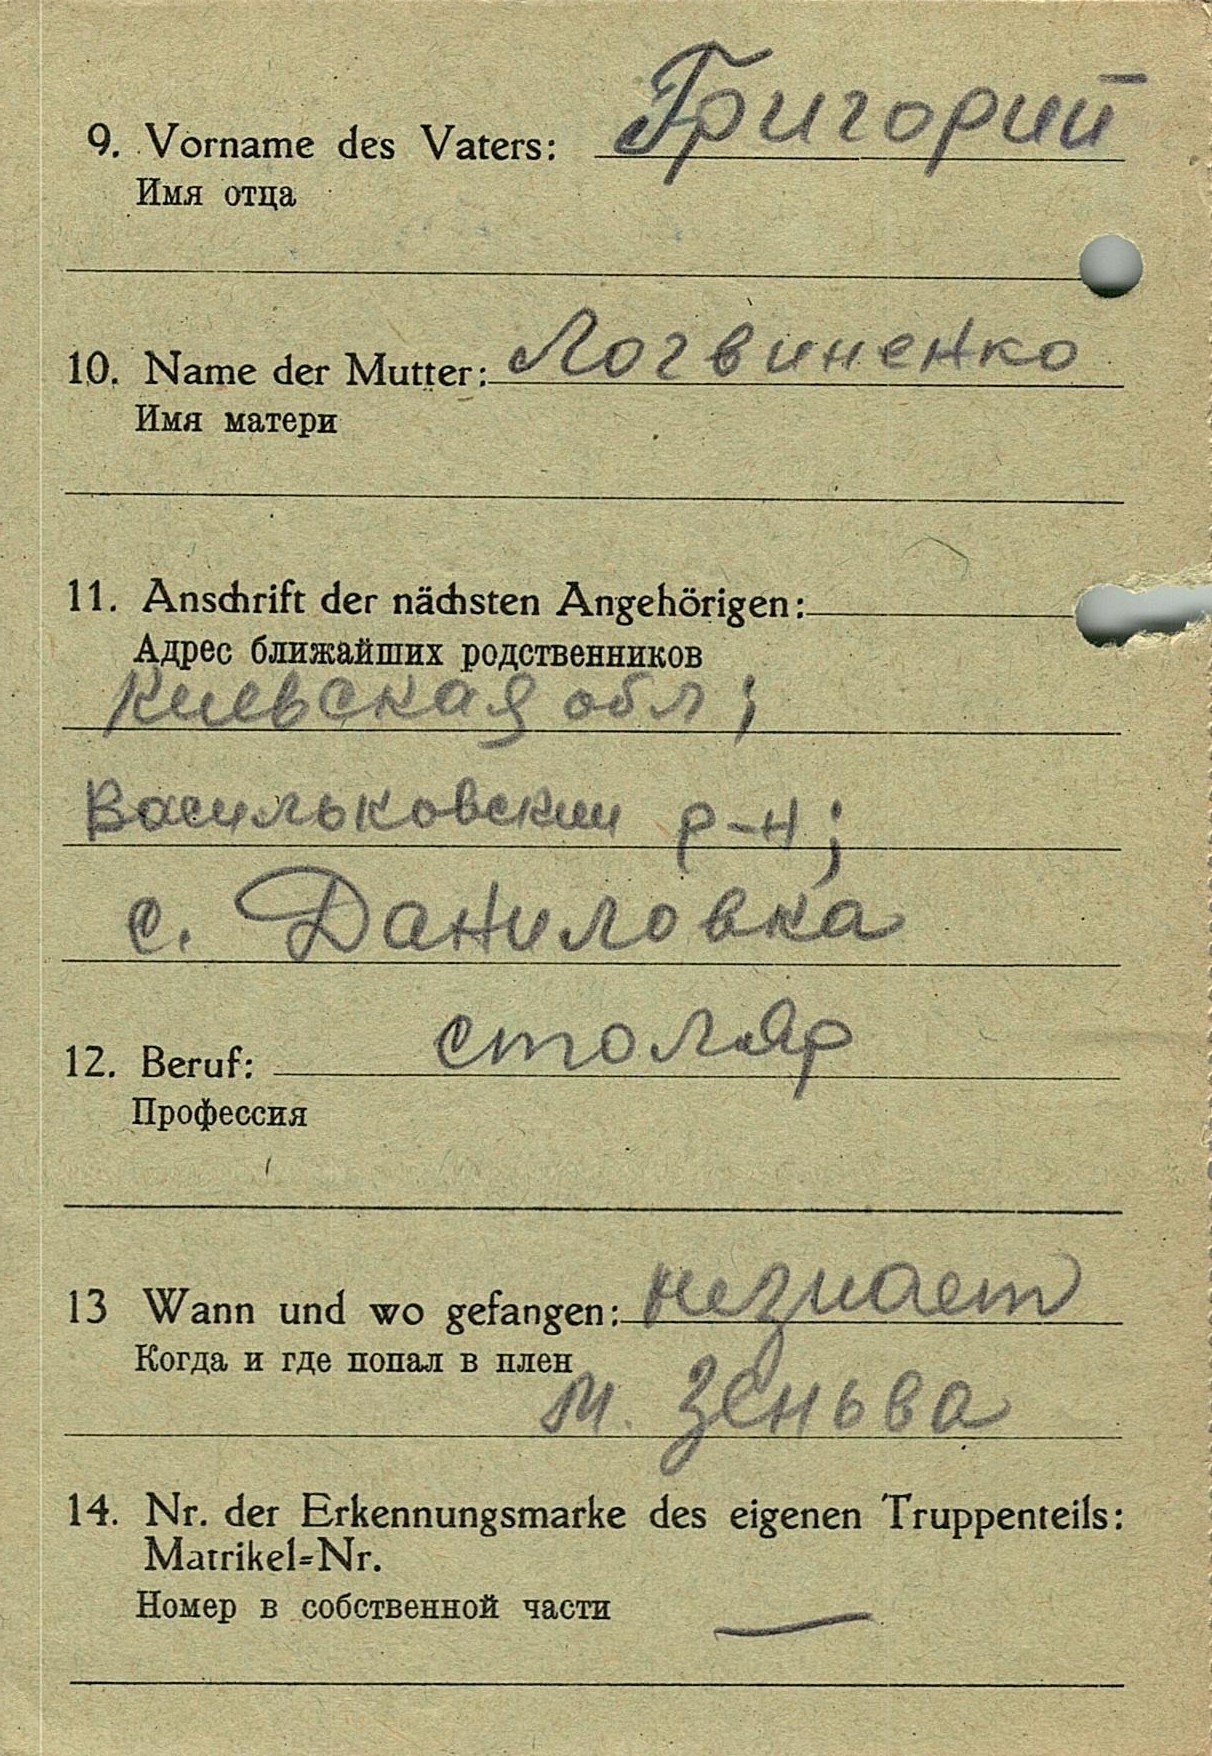 9. Vorname des Vaters: Григорий
Имя отца
10. Name der Mutter: Логвиненко
Имя матери
11. Anschrift der nächsten Angehörigen:
Адрес ближайших родственников
Киевская обл;
Васильковский р-н;
с. Даниловка
12. Beruf: столяр
Профессия
13 Wann und wo gefangen: незнает
Когда и где попал в плен
м. Зеньва
14. Nr. der Erkennungsmarke des eigenen Truppenteils:
Matrikel=Nr.
Номер в собственной части —